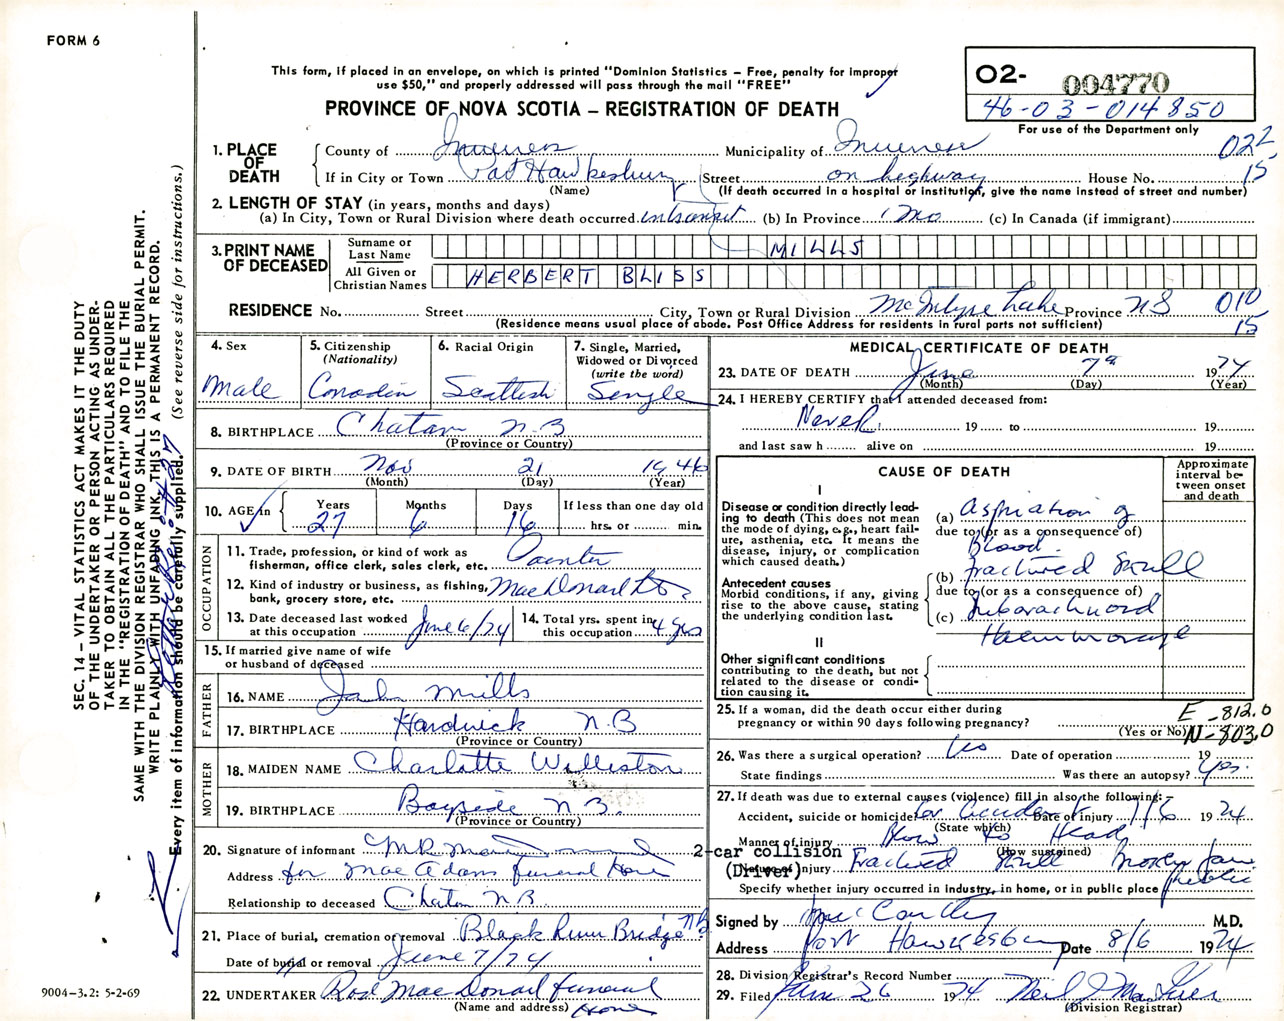 FORM 6
This form, if placed in an envelope, on which is printed "Dominion Statistics — Free, penalty for improper
use $50," and properly addressed will pass through the mail "FREE"
PROVINCE OF NOVA SCOTIA — REGISTRATION OF DEATH
O2- 004770
46-03-014850
For use of the Department only
1. PLACE OF DEATH
County of Inverness Municipality of Inverness 022
If in City or Town Port Hawkesbury Street on highway House No. 15
(Name) (If death occurred in a hospital or institution, give the name instead of street and number)
2. LENGTH OF STAY (in years, months and days)
(a) In City, Town or Rural Division where death occurred intransit (b) In Province 1 mo (c) In Canada (if immigrant)
3. PRINT NAME OF DECEASED
Surname or Last Name MILLS
All Given or Christian Names HERBERT BLISS
RESIDENCE No. Street City, Town or Rural Division McIntyre Lake Province NS 010
(Residence means usual place of abode. Post Office Address for residents in rural parts not sufficient) 15
4. Sex Male
5. Citizenship (Nationality) Canadian
6. Racial Origin Scottish
7. Single, Married, Widowed or Divorced (write the word) Single
8. BIRTHPLACE Chatam N.B
(Province or Country)
9. DATE OF BIRTH Nov 21 1946
(Month) (Day) (Year)
10. AGE in Years Months Days If less than one day old
27 6 16 hrs. or min.
OCCUPATION
11. Trade, profession, or kind of work as fisherman, office clerk, sales clerk, etc. Painter
12. Kind of industry or business, as fishing, bank, grocery store, etc. MacDonald
13. Date deceased last worked at this occupation June 6/74
14. Total yrs. spent in this occupation 4 yrs
15. If married give name of wife or husband of deceased
FATHER
16. NAME John Mills
17. BIRTHPLACE Hardwick N.B
(Province or Country)
MOTHER
18. MAIDEN NAME Charlotte Williston
19. BIRTHPLACE Bayside N.B.
(Province or Country)
20. Signature of informant
Address for Mac Adams Funeral Home
Relationship to deceased Chatam N.B.
21. Place of burial, cremation or removal Black River Bridge N B
Date of burial or removal June 7/74
22. UNDERTAKER Rod MacDonald funeral
(Name and address) Home
MEDICAL CERTIFICATE OF DEATH
23. DATE OF DEATH June 7th 1974
(Month) (Day) (Year)
24. I HEREBY CERTIFY that I attended deceased from:
Never 19 to 19
and last saw h alive on 19
CAUSE OF DEATH
Approximate interval between onset and death
I
Disease or condition directly leading to death (This does not mean the mode of dying, e.g., heart failure, asthenia, etc. It means the disease, injury, or complication which caused death.)
(a) Aspiration of
due to (or as a consequence of)
Blood
Antecedent causes
Morbid conditions, if any, giving rise to the above cause, stating the underlying condition last.
(b) fractured Skull
due to (or as a consequence of)
(c) Subarachnoid
Haemmorage
II
Other significant conditions
contributing to the death, but not related to the disease or condition causing it.
25. If a woman, did the death occur either during pregnancy or within 90 days following pregnancy?
(Yes or No)
E-812.0
N-803.0
26. Was there a surgical operation? No Date of operation 19
State findings Was there an autopsy? Yes.
27. If death was due to external causes (violence) fill in also the following:—
Accident, suicide or homicide Car Accident Date of injury 7/6 1974
(State which)
Manner of injury Blow to Head
(How sustained)
2-car collision
(Driver)
Nature of injury Fractured Skull Broken Jaw
Specify whether injury occurred in industry, in home, or in public place public
Signed by MacCarthy M.D.
Address Port Hawkesbury Date 8/6 1974
28. Division Registrar's Record Number
29. Filed June 26 1974 Neil J
(Division Registrar)
SEC. 14 — VITAL STATISTICS ACT MAKES IT THE DUTY
OF THE UNDERTAKER OR PERSON ACTING AS UNDER-
TAKER TO OBTAIN ALL THE PARTICULARS REQUIRED
IN THE "REGISTRATION OF DEATH" AND TO FILE THE
SAME WITH THE DIVISION REGISTRAR WHO SHALL ISSUE THE BURIAL PERMIT.
WRITE PLAINLY WITH UNFADING INK. THIS IS A PERMANENT RECORD.
Every item of information should be carefully supplied. (See reverse side for instructions.)
9004-3.2: 5-2-69